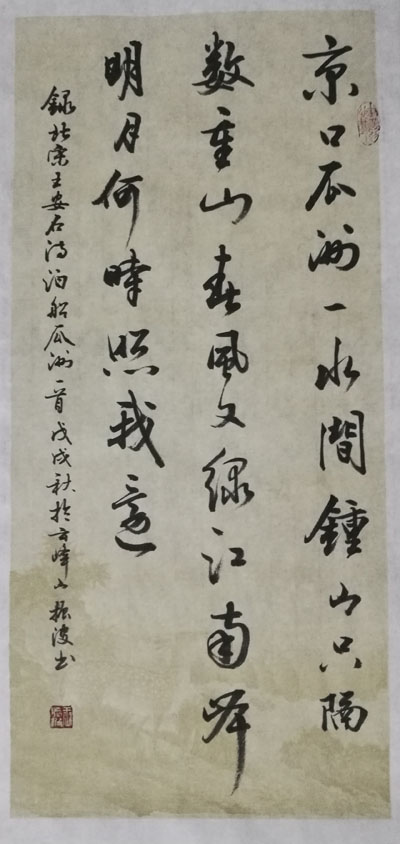 京口瓜洲一水間鍾山只隔
数重山春風又綠江南岸
明月何時照我還
録北宋王安石詩泊船瓜洲一首戊戌秋於峰山振波书